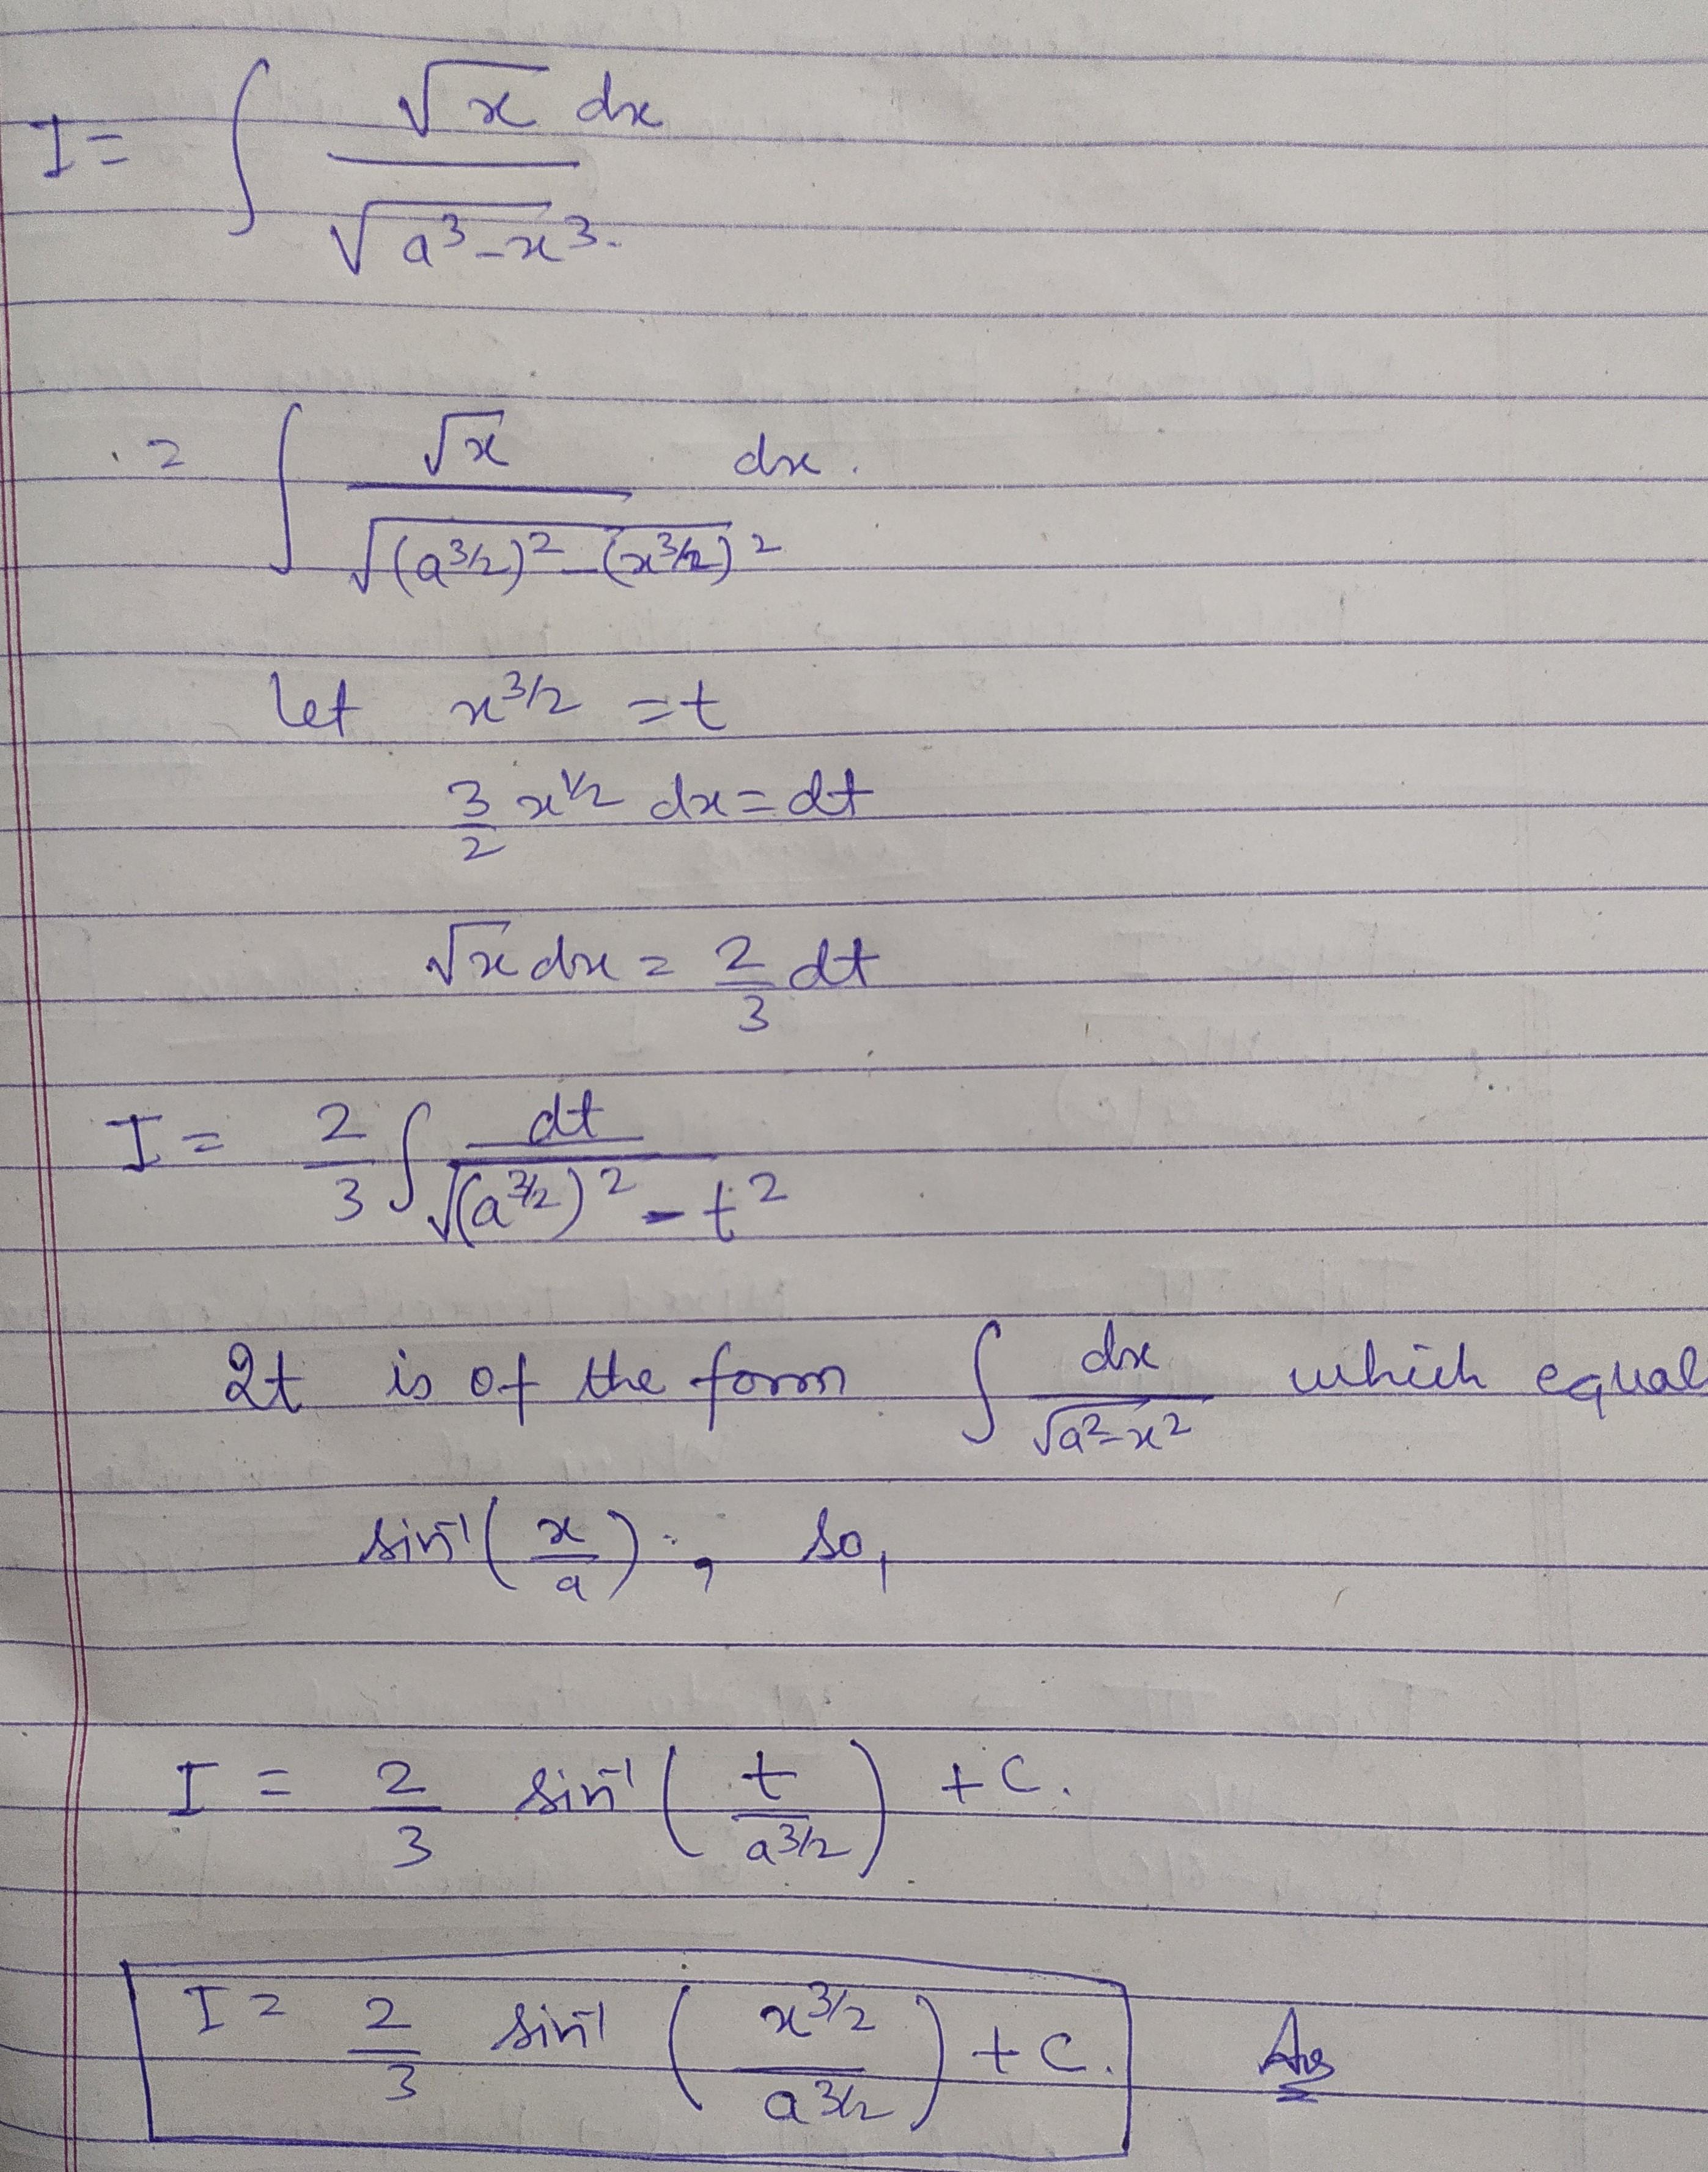 I = ∫ √x dx / √a³-x³.
= ∫ √x / √(a^3/2)² - (x^3/2)² dx.
let x^3/2 = t
3/2 x^1/2 dx = dt
√x dx = 2/3 dt
I = 2/3 ∫ dt / √(a^3/2)² - t²
It is of the form ∫ dx / √a²-x² which equal
sin⁻¹ (x/a) ; so,
I = 2/3 sin⁻¹ (t / a^3/2) + C.
I = 2/3 sin⁻¹ (x^3/2 / a^3/2) + C. Ans